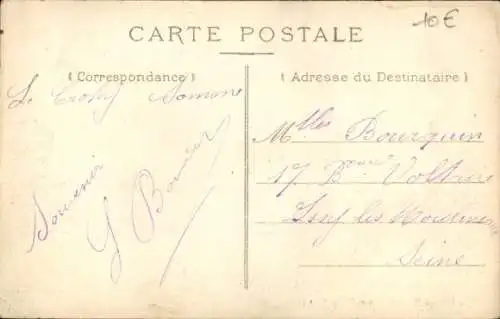 10€
CARTE POSTALE
(Correspondance)
Le Crotoy Somme
Souvenir
(Adresse du Destinataire)
Mlles Bourquin
17 Bd Voltaire
Issy les Mouline
Seine